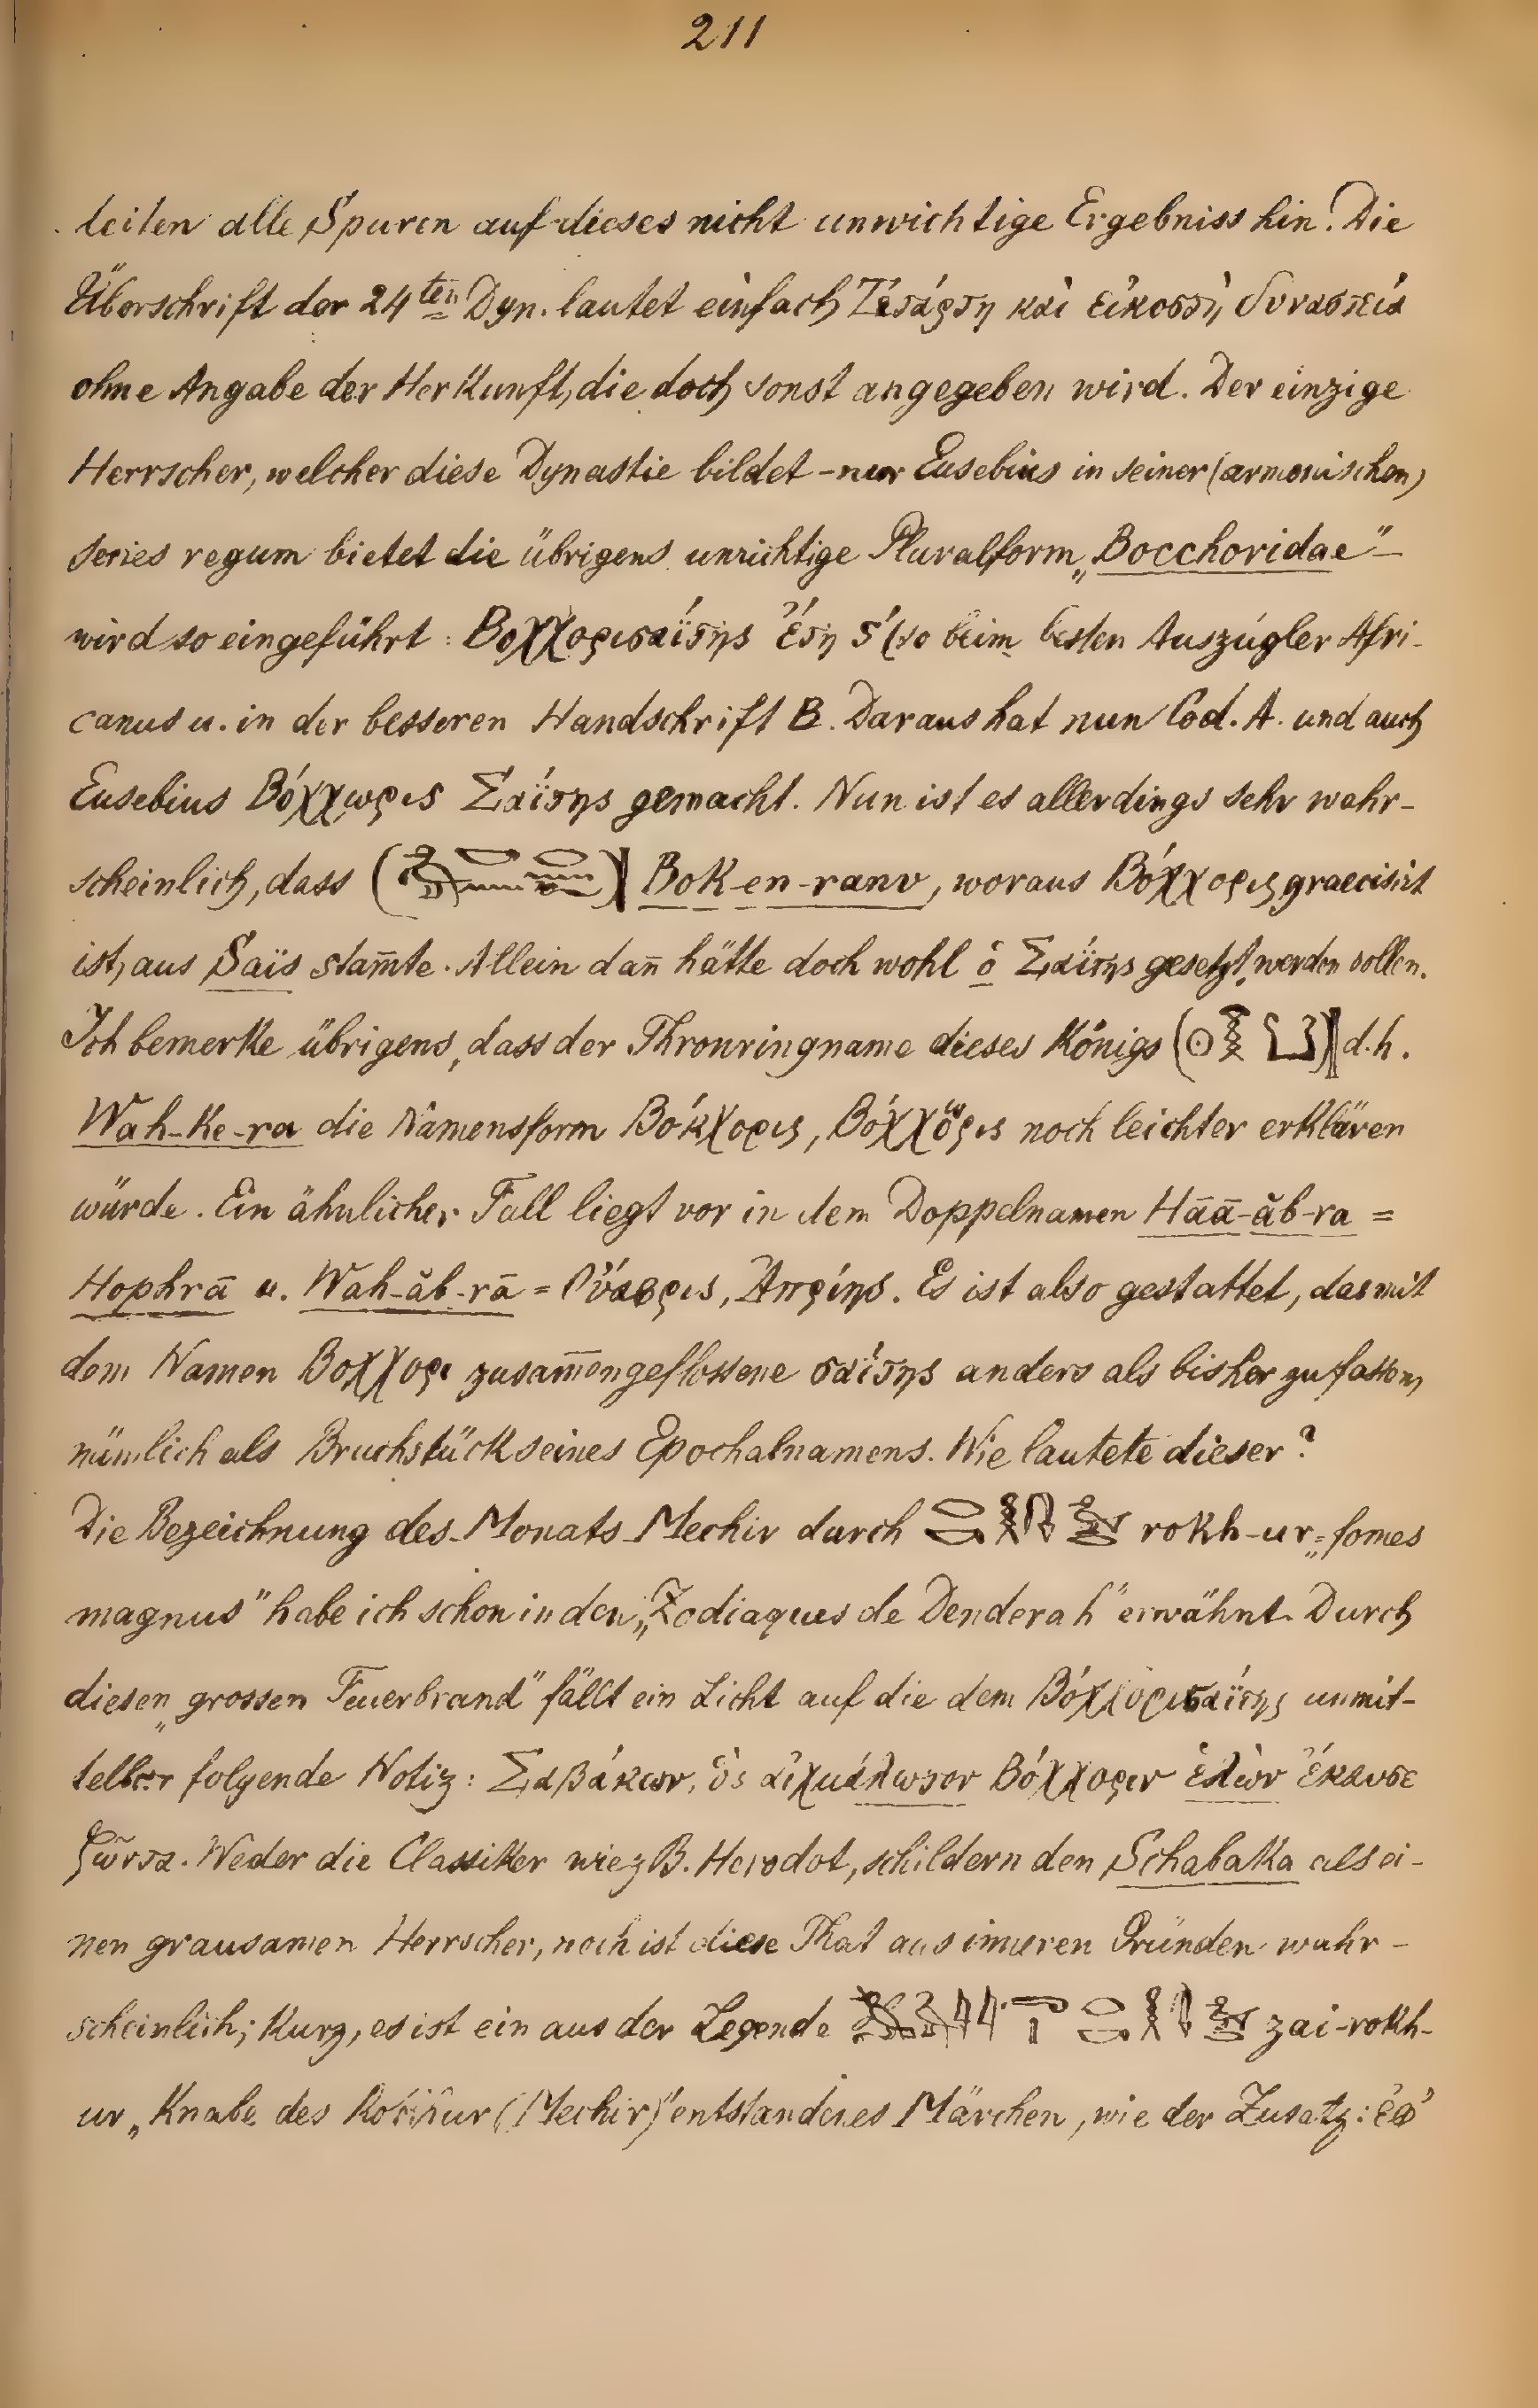 211
leiten alle Spuren auf dieses nicht unwichtige Ergebniss hin. Die
Überschrift der 24ten Dyn. lautet einfach Τετάρτη καὶ εἰκοστὴ δυναστεία
ohne Angabe der Herkunft, die doch sonst angegeben wird. Der einzige
Herrscher, welcher diese Dynastie bildet – nur Eusebius in seiner (armenischen)
series regum bietet die übrigens unrichtige Pluralform „Bocchoridae" –
wird so eingeführt: Βοχχορισαΐτης ἔτη ϛ' (so beim besten Auszügler Afri-
canus u. in der besseren Handschrift B. Daraus hat nun Cod. A. und auch
Eusebius Βόχχωρις Σαΐτης gemacht. Nun ist es allerdings sehr wahr-
scheinlich, dass Bok-en-ranv, woraus Βόχχορις graecisirt
ist, aus Saïs stam̄te. Allein dan̄ hätte doch wohl ὁ Σαΐτης gesetzt werden sollen.
Ich bemerke übrigens, dass der Thronringname dieses Königs d. h.
Wah-ke-ra die Namensform Βόκχορις, Βόχχορις noch leichter erklären
würde. Ein ähnlicher Fall liegt vor in dem Doppelnamen Hāā-ăb-ra =
Hophrā u. Wah-ăb-rā = Οὐάφρις, Ἀπρίης. Es ist also gestattet, das mit
dem Namen Βοχχορι zusam̄engeflossene σαΐτης anders als bisher zu fassen,
nämlich als Bruchstück seines Epochalnamens. Wie lautete dieser?
Die Bezeichnung des Monats Mechir durch rokh-ur = „fomes
magnus" habe ich schon in den „Zodiaques de Denderah" erwähnt. Durch
diesen „grossen Feuerbrand" fällt ein Licht auf die dem Βόχχορισαΐτης unmit-
telbar folgende Notiz: Σαβάκων, ὃς αἰχμάλωτον Βόχχοριν ἑλὼν ἔκαυσε
ζῶντα. Weder die Classiker wie z B. Herodot, schildern den Schabaka als ei-
nen grausamen Herrscher, noch ist diese That aus inneren Gründen wahr-
scheinlich; kurz, es ist ein aus der Legende zai-rokh-
ur „Knabe des Rokhur (Mechir)" entstandenes Märchen, wie der Zusatz: ἐφ'